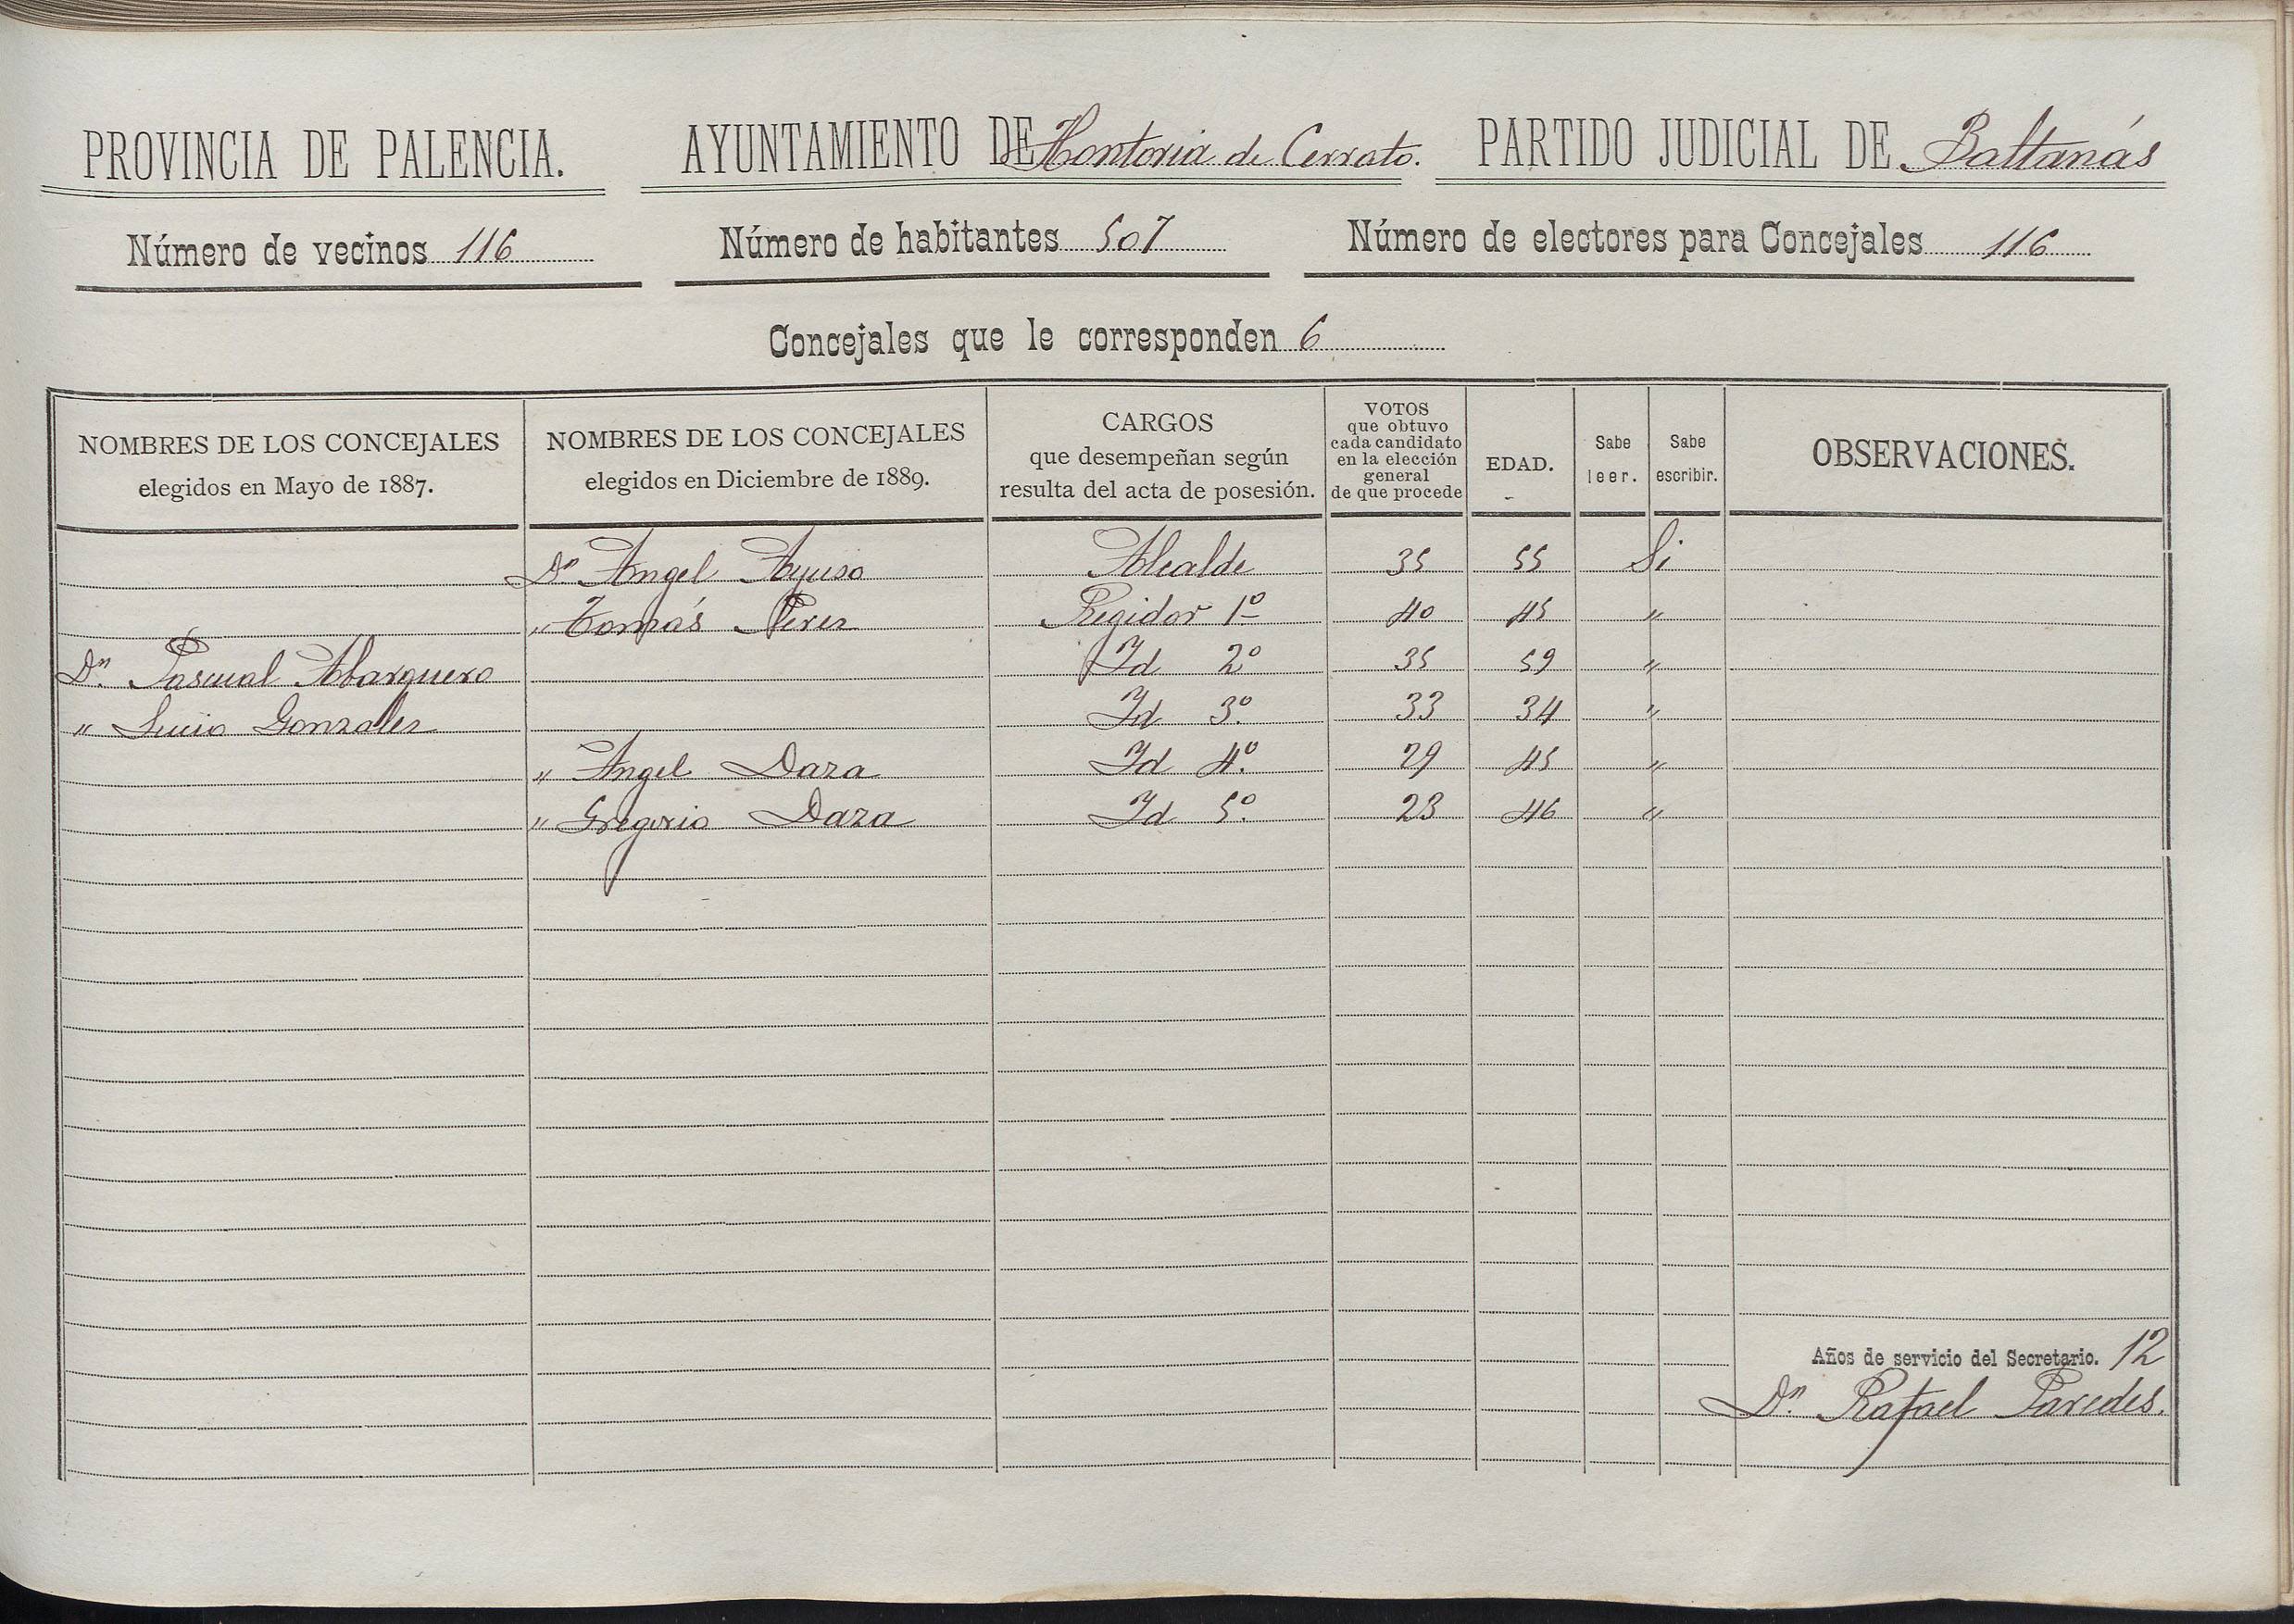 PROVINCIA DE PALENCIA. AYUNTAMIENTO DE Hontoria de Cerrato. PARTIDO JUDICIAL DE Baltanás
Número de vecinos 116 Número de habitantes 507 Número de electores para Concejales 116
Concejales que le corresponden 6
NOMBRES DE LOS CONCEJALES
elegidos en Mayo de 1887.
NOMBRES DE LOS CONCEJALES
elegidos en Diciembre de 1889.
CARGOS
que desempeñan según
resulta del acta de posesión.
VOTOS
que obtuvo
cada candidato
en la elección
general
de que procede
EDAD.
Sabe
leer.
Sabe
escribir.
OBSERVACIONES.
Dn Angel Ayuso Alcalde 35 55 Si
" Tomás Perez Regidor 1º 40 45 "
Dn. Pascual Abarquero Id 2º 35 59 "
" Lucio Gonzalez Id 3º. 33 34 "
" Angel Daza Id 4º. 29 45 "
" Gregorio Daza Id 5º. 23 46 "
Años de servicio del Secretario. 12
Dn. Rafael Paredes.